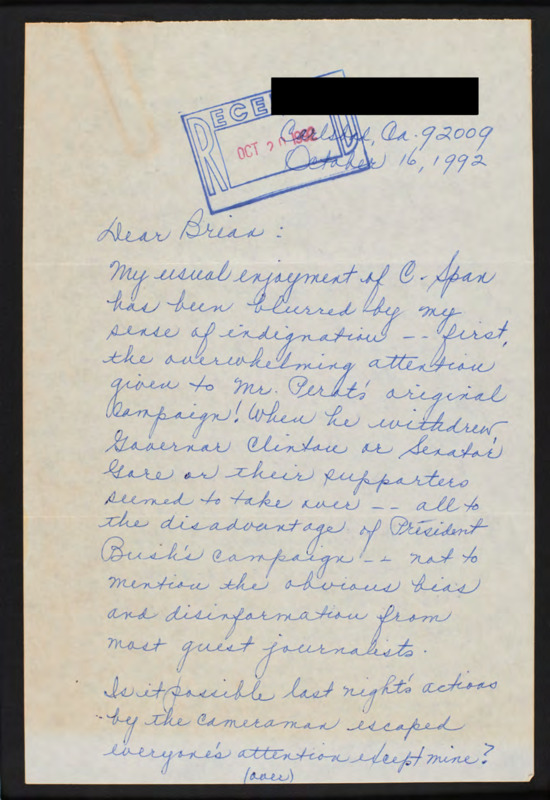 RECE D
OCT 20 1992
Carlsbad, Ca. 92009
October 16, 1992
Dear Brian :
My usual enjoyment of C-Span
has been blurred by my
sense of indignation -- first,
the overwhelming attention
given to Mr. Perot's original
campaign! When he withdrew
Governor Clinton or Senator
Gore or their supporters
seemed to take over -- all to
the disadvantage of President
Bush's campaign -- not to
mention the obvious bias
and disinformation from
most guest journalists.
Is it possible last night's actions
by the cameraman escaped
everyone's attention except mine?
(over)